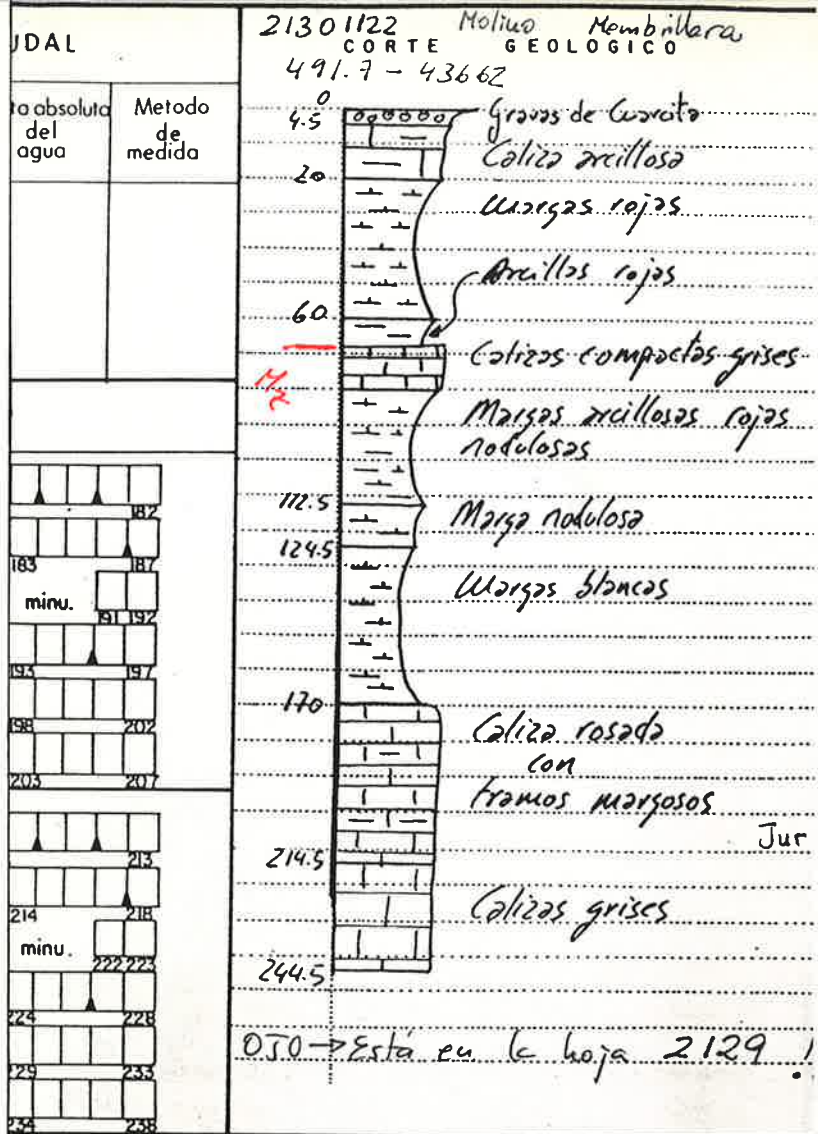 UDAL
ta absoluta
del
agua
Metodo
de
medida
182
183 187
minu.
191 192
193 197
198 202
203 207
213
214 218
minu.
222 223
224 228
229 233
234 238
21301122 Molino Membrillera
CORTE GEOLOGICO
491.7 - 43662
0
Gravas de Cuarcita
4.5
Caliza arcillosa
20
Margas rojas
Arcillas rojas
60
Calizas compactas grises
Margas arcillosas rojas
nodulosas
112.5
Marga nodulosa
124.5
Margas blancas
170
Caliza rosada
con
tramos margosos
Jur
214.5
Calizas grises
244.5
OJO → Está en la hoja 2129 !